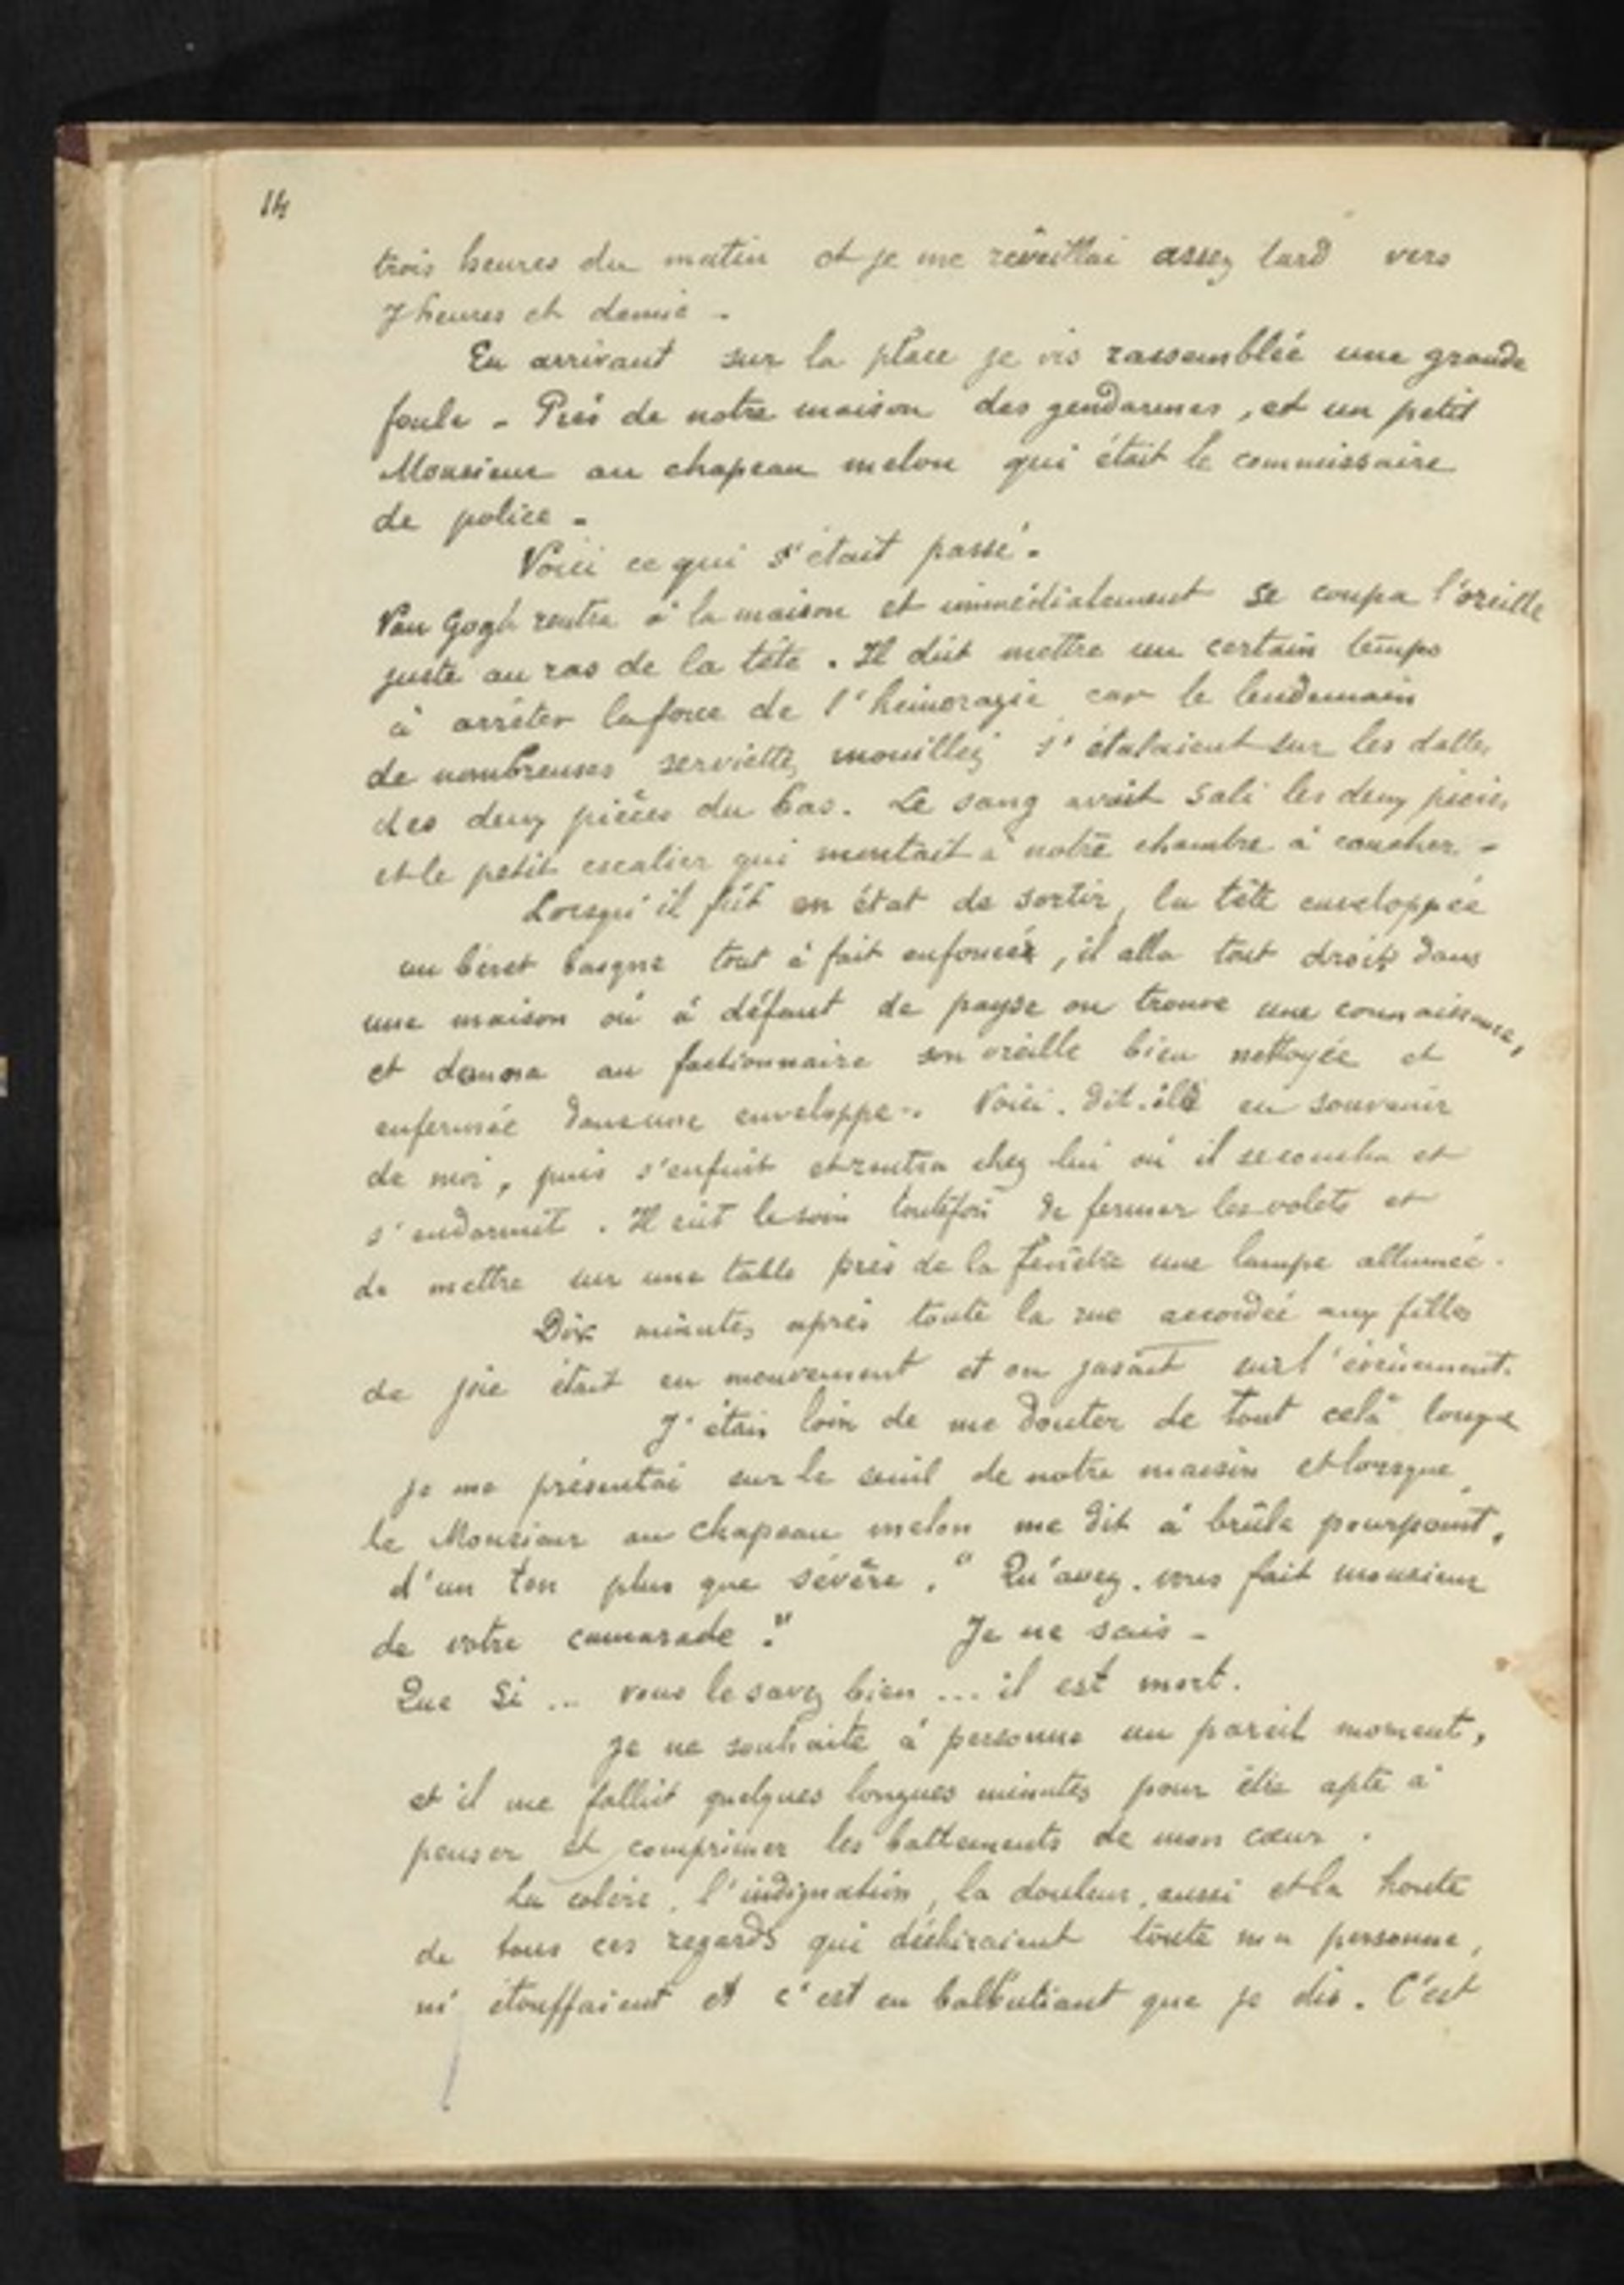 14
trois heures du matin et je me réveillai assez tard vers
7 heures et demie -
En arrivant sur la place je vis rassemblée une grande
foule - Près de notre maison des gendarmes, et un petit
Monsieur au chapeau melon qui était le commissaire
de police -
Voici ce qui s'était passé -
Van Gogh rentra à la maison et immédiatement se coupa l'oreille
juste au ras de la tête. Il dût mettre un certain temps
à arrêter la force de l'hémoragie car le lendemain
de nombreuses serviettes mouillées s'étalaient sur les dalles
des deux pièces du bas. Le sang avait sali les deux pièces
et le petit escalier qui montait à notre chambre à coucher -
Lorsqu'il fût en état de sortir, la tête enveloppée
un béret basque tout à fait enfoncé, il alla tout droit dans
une maison où à défaut de payse on trouve une connaissance,
et donna au factionnaire son oreille bien nettoyée et
enfermée dans une enveloppe. Voici. dit-il en souvenir
de moi, puis s'enfuit et rentra chez lui où il se coucha et
s'endormit. Il eût le soin toutefois de fermer les volets et
de mettre sur une table près de la fenêtre une lampe allumée.
Dix minutes après toute la rue accordée aux filles
de joie était en mouvement et on jasait sur l'évènement.
J'étais loin de me douter de tout celà lorsque
je me présentai sur le seuil de notre maison et lorsque
le Monsieur au chapeau melon me dit à brûle pourpoint,
d'un ton plus que sévère. " Qu'avez. vous fait monsieur
de votre camarade." Je ne sais -
Que Si ... vous le savez bien ... il est mort.
Je ne souhaite à personne un pareil moment,
et il me fallût quelques longues minutes pour être apte à
penser et comprimer les battements de mon cœur.
La colère, l'indignation, la douleur, aussi et la honte
de tous ces regards qui déchiraient toute ma personne,
m'étouffaient et c'est en balbutiant que je dis. C'est